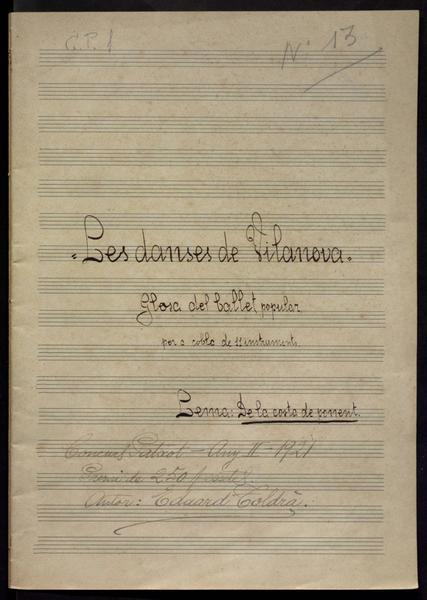 Nº 13
"Les danses de Vilanova"
Glosa del ballet popular
per a cobla de 11 instruments.
Lema: De la costa de ponent.
Concurs Patxot - Any II - 1921
Premi de 250 pessetes.
Autor: Eduard Toldrà.